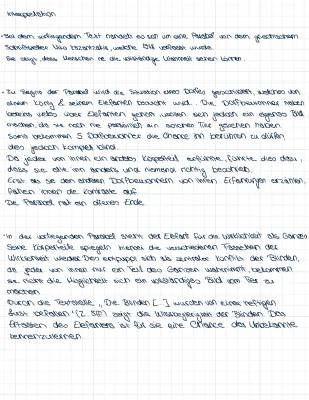 Interpretation
• Bei dem vorliegendem Text handelt es sich um eine Parabel von dem griechischem
Schriftsteller Niko Kazantzakis, welche verfasst wurde.
Sie zeigt, dass Menschen nie die vollständige Wahrheit sehen können.
• Zu Beginn der Parabel wird die Situation eines Dorfes geschildert, welches von
einem König & seinem Elefanten besucht wird. Die Dorfbewohner haben
bereits vieles über Elefanten gehört wollen sich jedoch ein eigenes Bild
machen, da sie noch nie persönlich ein solches Tier gesehen haben.
Somit bekommen 5 Dorfbewohner die Chance ihn berühren zu dürfen,
dies jedoch komplett blind.
Da jeder von ihnen ein anderes Körperteil erfühlte, führte dies dazu,
dass sie alle ihn anders und niemand richtig beschrieb.
Erst als sie den anderen Dorfbewohnern von ihren Erfahrungen erzählen,
fallen ihnen die Kontraste auf.
Die Parabel hat ein offenes Ende.
• In der vorliegenden Parabel steht der Elefant für die Wirklichkeit als Ganzes.
Seine Körperteile spiegeln hierbei die verschiedenen Facetten der
Wirklichkeit wieder. Dies entpuppt sich als zentraler Konflikt der Blinden,
da jeder von ihnen nur ein Teil des Ganzen wahrnimmt, bekommen
sie nicht die Möglichkeit sich ein vollständiges Bild vom Tier zu
machen.
Durch die Textstelle „Die Blinden [...] wurden von einer heftigen
Lust befallen" (Z. ) zeigt die Wissbegierigkeit der Blinden. Das
Ertasten des Elefanten ist für sie eine Chance das Unbekannte
kennenzulernen.